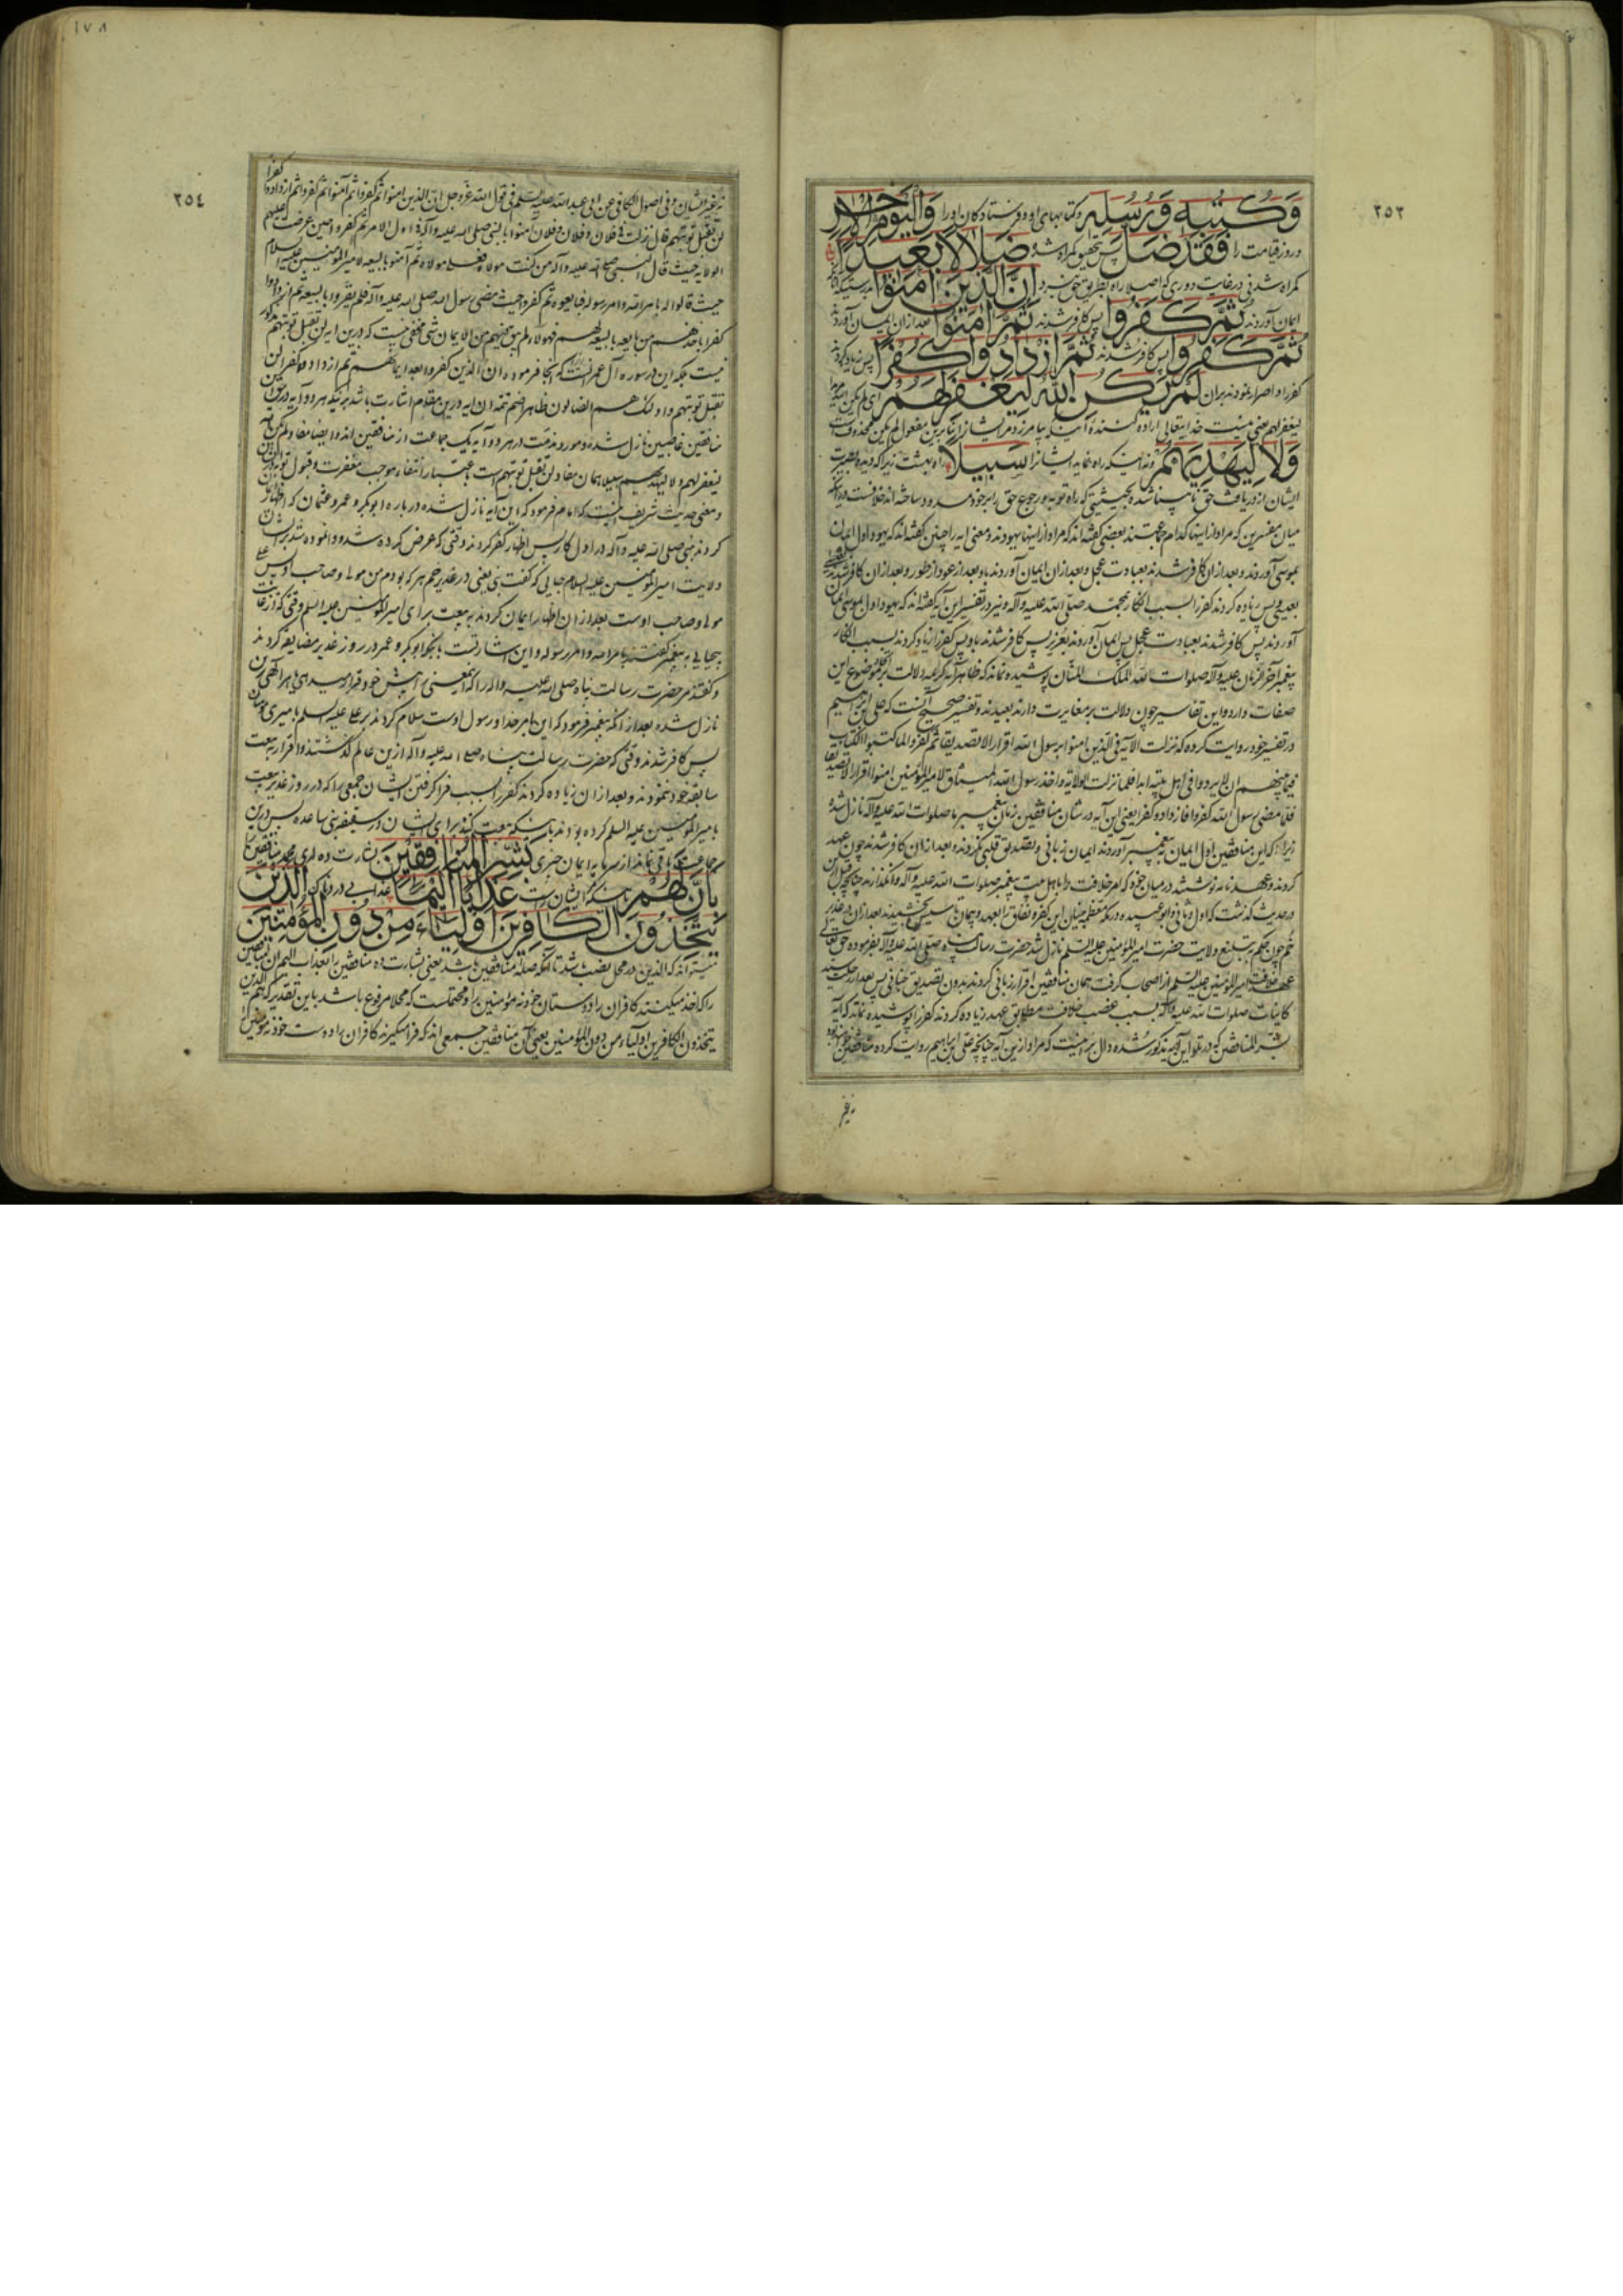 ٣٥٣
وَكُتُبِهِ وَرُسُلِهِ وکتابهای او و فرستادگان او را وَالْيَوْمِ الْآخِرِ
و روز قیامت را فَقَدْ ضَلَّ پس بتحقیق گمراه شد ضَلَالًا بَعِيدًا
گمراه شدنی در غایت دوری که اصلا راه بطریق حق نبرد إِنَّ الَّذِينَ آمَنُوا بدرستیکه آنانکه
ایمان آوردند ثُمَّ كَفَرُوا پس کافر شدند ثُمَّ آمَنُوا بعد از ان ایمان آوردند
ثُمَّ كَفَرُوا پس کافر شدند ثُمَّ ازْدَادُوا كُفْرًا پس زیاد کردند
کفر را و اصرار نمودند بران لَمْ يَكُنِ اللَّهُ لِيَغْفِرَ لَهُمْ ای لم یکن الله مریدا
لیغفر لهم یعنی نیست خدایتعالی اراده کننده آنکه بیامرزد مر ایشانرا بنابرین مفعول لم یکن محذوفست
وَلَا لِيَهْدِيَهُمْ و نه اینکه راه نماید ایشانرا سَبِيلًا راه بهشت زیرا که دیده بصیرت
ایشان از دریافت حق نابینا شده بحیثیتی که راه توبه و رجوع حق را بر خود مسدود ساخته اند خلافست
میان مفسرین که مراد از اینها کدام جماعتند بعضی گفته اند که مراد از اینها یهودند و معنی ایه را چنین گفته اند که یهود اول ایمان
بموسی آوردند و بعد از ان کافر شدند بعبادت عجل و بعد از ان ایمان آوردند باو بعد از عود از طور و بعد از ان کافر شدند
بعیسی و پس زیاده کردند کفر را بسبب انکار محمد صلی الله علیه و آله و نیز در تفسیر این آیه گفته اند که یهود اول بموسی ایمان
آوردند پس کافر شدند بعبادت عجل پس ایمان آوردند بعزیر پس کافر شدند باو پس کفر را زیاد کردند بسبب انکار
پیغمبر آخر الزمان علیه و آله صلوات الله الملک المنان پوشیده نماند که ظاهر آیه کریمه دلالت بر موضوع این
صفات دارد و این تفاسیر چون دلالت بر مغایرت دارند بعیدند و تفسیر صحیح آنست که علی ابن ابراهیم
در تفسیر خود روایت کرده که نزلت الآیة فی الذین امنوا برسول الله اقرارا لا تصدیقا ثم کفروا لما کتبوا الکتاب
فیما بینهم ان لا یردوا فی اهل بیته ابدا فلما نزلت الولایة و اخذ رسول الله المیثاق لامیر المؤمنین امنوا اقرارا لا تصدیقا
فلما مضی رسول الله کفروا فازدادوا کفرا یعنی این آیه در شان منافقین زمان پیغمبر ما صلوات الله علیه و آله نازل شده
زیرا که این منافقین اول ایمان به پیغمبر آوردند ایمان زبانی و تصدیق قلبی نکردند و بعد از ان کافر شدند چون عهد
کردند و عهدنامه نوشتند در میان خود که امر خلافت را باهل بیت پیغمبر صلوات الله علیه و آله وانگذارند چنانچه قبل ازین
در حدیث گذشت که اول و ثانی و ابو عبیده در مکه معظمه بنیان این کفر و نفاق را بعهد و پیمان تاسیس بخشیدند بعد از ان در غدیر
خم چون حکم بتبلیغ ولایت حضرت امیر المؤمنین علیه السلم نازل شد حضرت رسالت پناه صلی الله علیه و آله بفرموده حق تعالی
عهد خلافت امیر المؤمنین علیه السلم از اصحاب گرفت همان منافقین اقرار زبانی کردند بدون تصدیق جنانی پس بعد از رحلت سید
کاینات صلوات الله علیه و آله بسبب غصب خلافت مطابق عهد زیاده کردند کفر را پوشیده نماند که آیه
بشر المنافقین که در تلو این آیه مذکور شده دال بر اینست که مراد ازین آیه چنانچه علی ابن ابراهیم روایت کرده منافقین
نه غیر
١٧٨
٣٥٤
نه غیر ایشان و فی اصول الکافی عن ابی عبد الله علیه السلم فی قول الله عز و جل ان الذین امنوا ثم کفروا ثم آمنوا ثم کفروا ثم ازدادوا کفرا
لن تقبل توبتهم قال نزلت فی فلان و فلان و فلان امنوا بالنبی صلی الله علیه و آله فی اول الامر ثم کفروا حین عرضت علیهم
الولایة حیث قال النبی صلی الله علیه و آله من کنت مولاه فعلی مولاه ثم آمنوا بالبیعة لامیر المؤمنین علیه السلام
حیث قالوا له بامر الله و امر رسوله فبایعوه ثم کفروا حیث مضی رسول الله صلی الله علیه و آله فلم یقروا بالبیعة ثم ازدادوا
کفرا باخذهم من بایعه بالبیعة لهم فهؤلاء لم یبق فیهم من الایمان شی مخفی نیست که درین ایه لن تقبل توبتهم مذکور
نیست بلکه این در سوره آل عمرانست که انجا فرموده ان الذین کفروا بعد ایمانهم ثم ازدادوا کفرا لن
تقبل توبتهم و اولئک هم الضالون ظاهرا ضم تتمه ان ایه درین مقام اشارت باشد برینکه هر دو آیه در حق این
منافقین غاصبین نازل شده و مورد مذمت در هر دو آیه یک جماعت از منافقین اند و ایضا مفاد لم یکن الله
لیغفر لهم و لا لیهدیهم سبیلا همان مفاد لن تقبل توبتهم است باعتبار انتفاء موجب مغفرت و قبول توبه
و معنی حدیث شریف اینست که امام فرمود که این آیه نازل شده در باره ابو بکر و عمر و عثمان که اظهار
کردند بنبی صلی الله علیه و آله در اول کار پس اظهار کفر کردند وقتی که عرض کرده شد و وانموده شد بر ایشان
ولایت امیر المؤمنین علیه السلام جایی که گفت نبی یعنی در غدیر خم هر که بودم من مولی و صاحب او پس علی
مولی و صاحب اوست بعد از ان اظهار ایمان کردند به بیعت برای امیر المؤمنین علیه السلم وقتی که از غایت
بیحیایی به پیغمبر گفتند بامر الله و امر رسوله و این اشارتست باینکه ابو بکر و عمر در روز غدیر مضایقه کردند
و گفتند مر حضرت رسالت پناه صلی الله علیه و اله را که اینمعنی را پیش خود قرار میدهی یا بامر الهی
نازل شده بعد از انکه پیغمبر فرمود که این بامر خدا و رسول اوست سلام کردند بر علی علیه السلم بامیری مؤمنان
پس کافر شدند وقتی که حضرت رسالت پناه صلی الله علیه و آله ازین عالم گذشتند و اقرار به بیعت
سابقه خود ننمودند و بعد از ان زیاده کردند کفر را بسبب فرا گرفتن ایشان جمعی را که در روز غدیر بیعت
بامیر المؤمنین علیه السلم کرده بودند باینکه بیعت کنند برای ایشان در سقیفه بنی ساعده پس درین
جماعت باقی نماند از سرمایه ایمان چیزی بَشِّرِ الْمُنَافِقِينَ بشارت ده ای محمد منافقین را
بِأَنَّ لَهُمْ باینکه ایشان راست عَذَابًا أَلِيمًا عذابی دردناک الَّذِينَ
يَتَّخِذُونَ الْكَافِرِينَ أَوْلِيَاءَ مِنْ دُونِ الْمُؤْمِنِينَ
میتواند که الذین در محل نصب باشد تا آنکه صفت منافقین باشد یعنی بشارت ده منافقین را بعذاب الیم
را که اخذ میکنند کافران را دوستان خود نه مؤمنین را و محتملست که محلا مرفوع باشد باین تقدیر که هم الذین
یتخذون الکافرین اولیاء من دون المؤمنین یعنی آن منافقین جمعی اند که فرا میگیرند کافران را دوست خود نه مؤمنین را